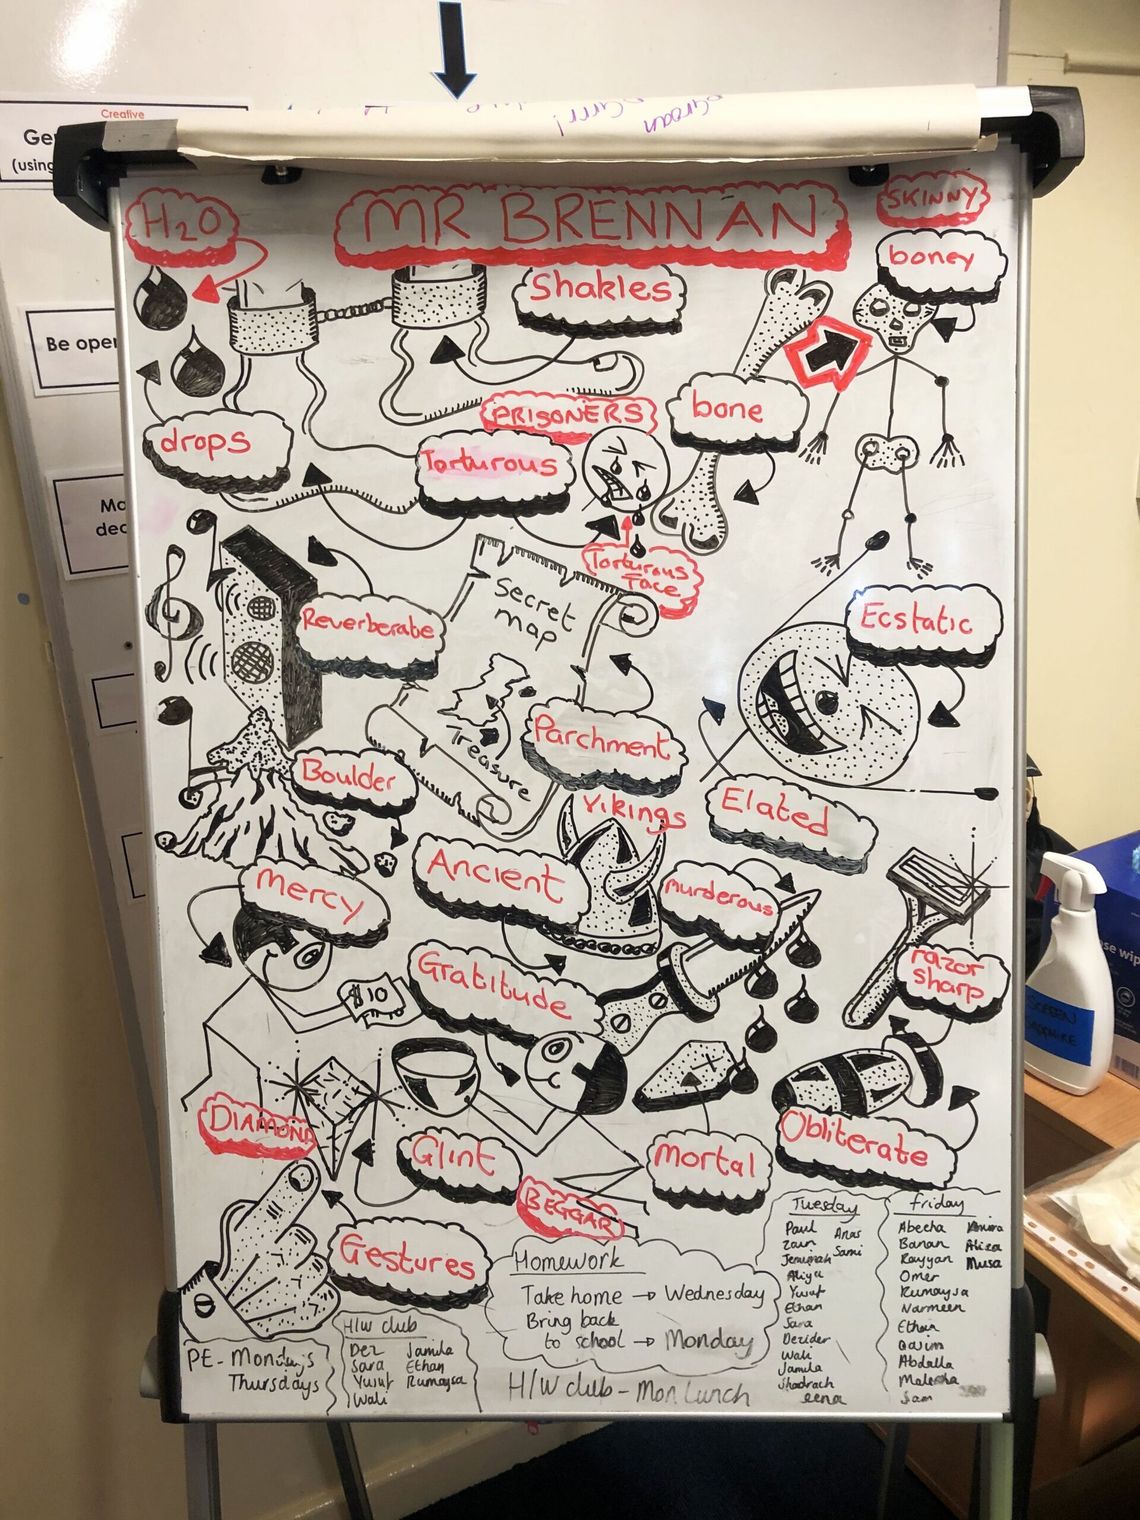 Creative
Groan
Grrr!
Ge
(using
Be oper
Ma
dec
H2O
MR BRENNAN
SKINNY
boney
Shakles
PRISONERS
bone
drops
Torturous
Torturous
Face
Secret
map
Reverberate
Ecstatic
Parchment
Treasure
Boulder
Vikings
Elated
Ancient
Mercy
Murderous
Gratitude
razor
sharp
$10
DIAMOND
Glint
Mortal
Obliterate
BEGGAR
Gestures
Homework
Take home → Wednesday
Bring back
to school → Monday
H/W club - Mon Lunch
PE - Mondays
Thursdays
H/W club
Dez Jamila
Sara Ethan
Yusuf Rumaysa
Wali
Tuesday
Paul Anas
Zain Sami
Jeremiah
Aliya
Yusuf
Ethan
Sara
Dezider
Wali
Jamila
Shadrach
eena
Friday
Abeeha Amira
Banan Aliza
Rayyan Musa
Omer
Rumaysa
Narmeen
Ethan
Qasim
Abdalla
Maleeha
Sam
SCREEN
SAPPHIRE
se wip